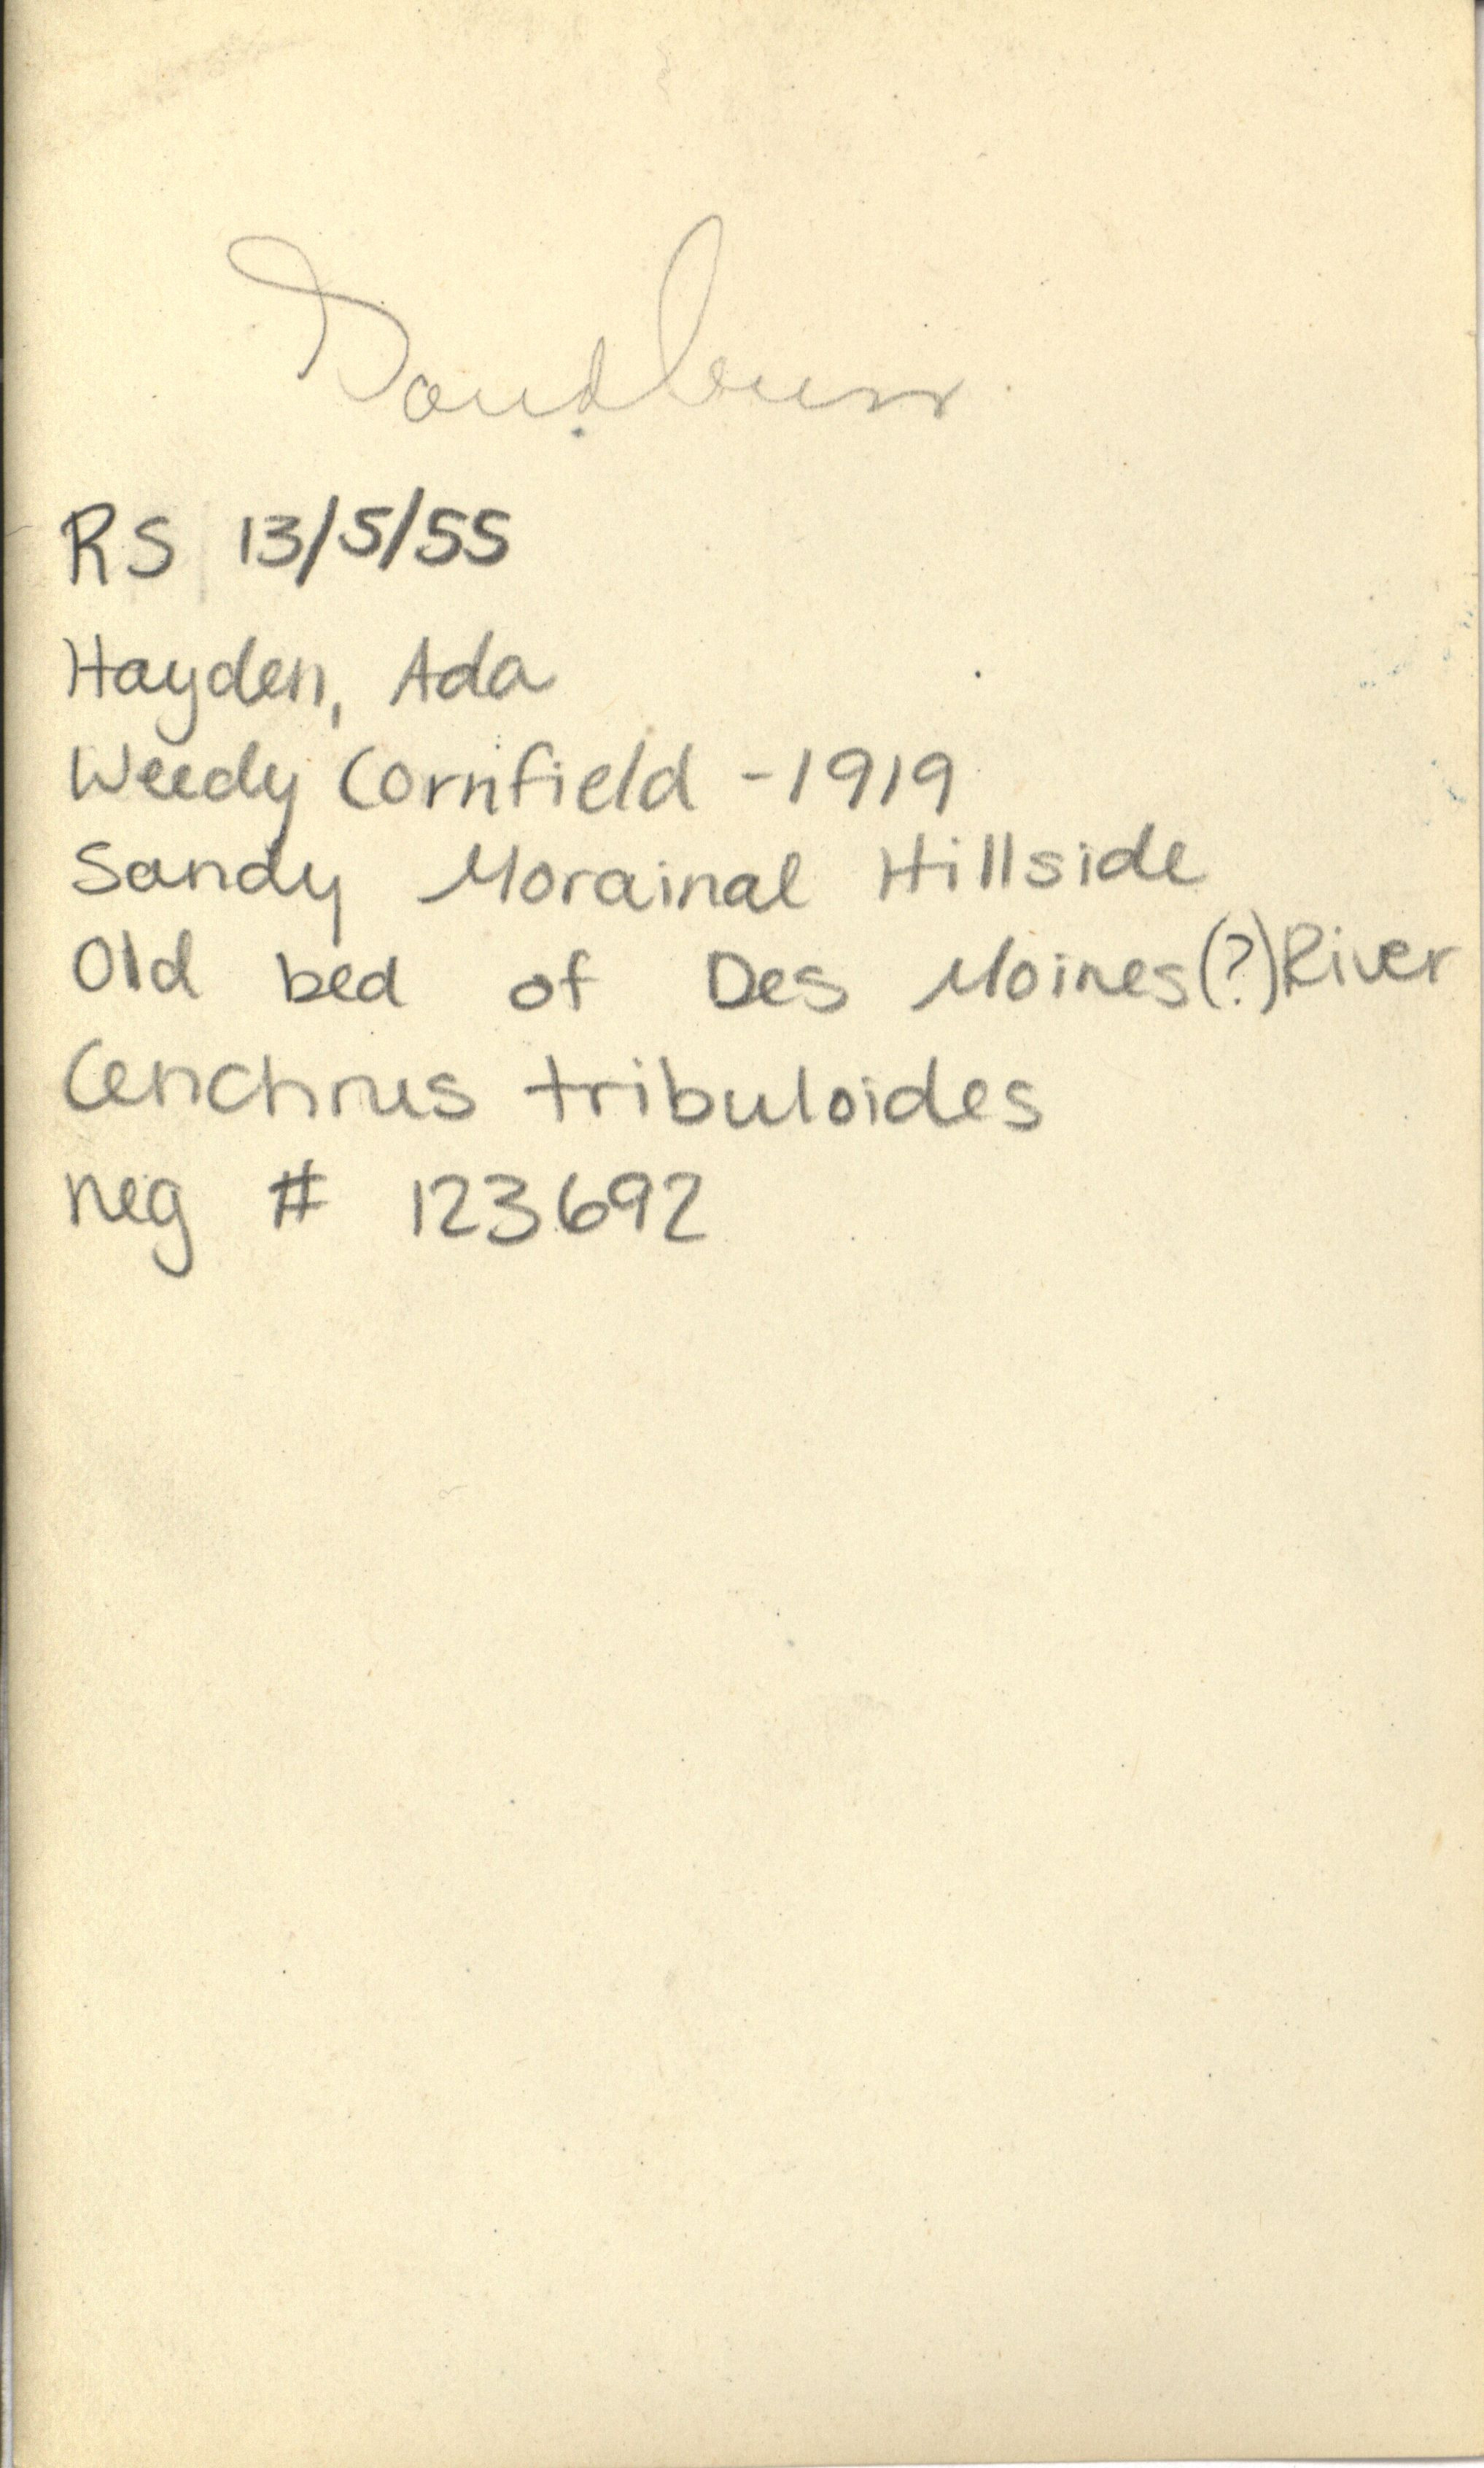 Sandburr
RS 13/5/55
Hayden, Ada
Weedy Cornfield - 1919
Sandy Morainal Hillside
Old bed of Des Moines (?) River
Cenchrus tribuloides
neg # 123692